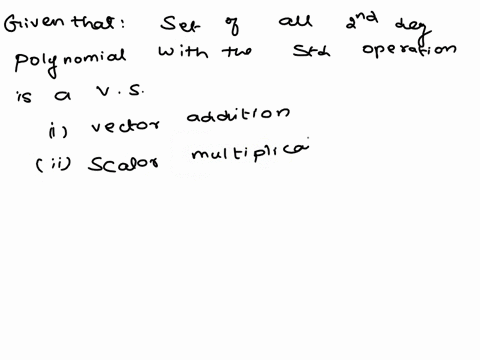 Given that: Set of all 2nd deg
polynomial with the Std operation
is a v.s.
i) vector addition
(ii) Scalor multiplica